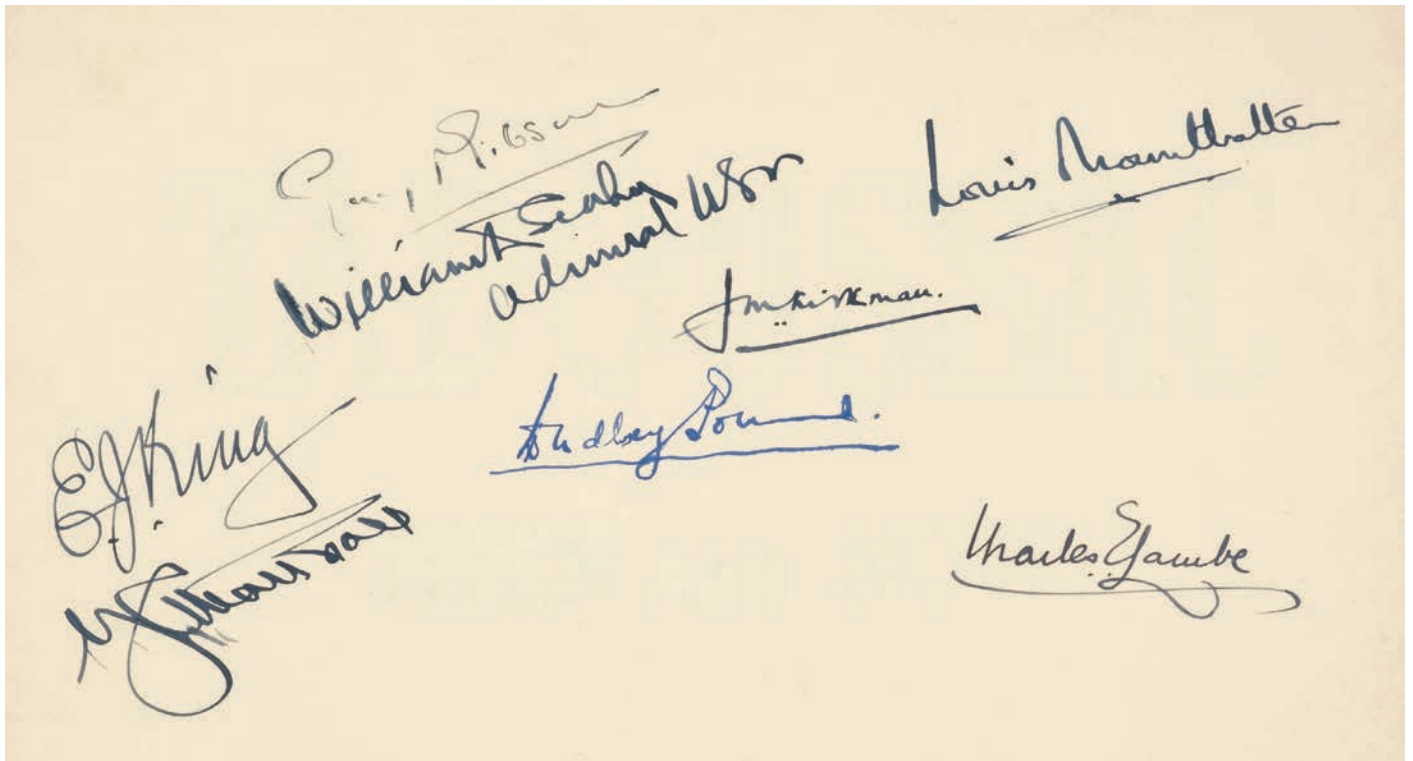 Guy Gibson
William D Leahy
Admiral USN
Louis Mountbatten
J M Kirkman.
E J King
Dudley Pound.
G C Marshall
Charles E Lambe